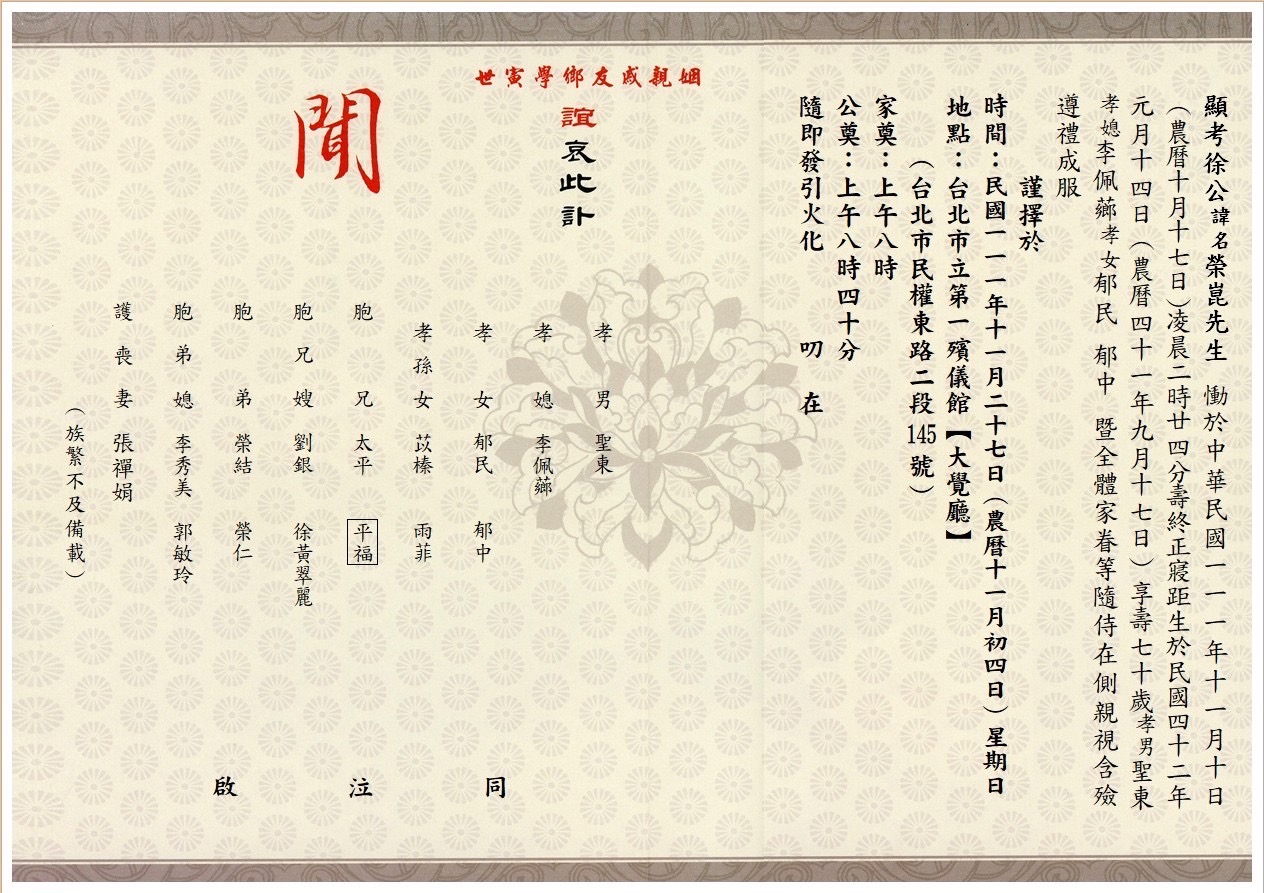 顯考徐公諱名榮崑先生 慟於中華民國一一一年十一月十日
（農曆十月十七日）凌晨二時廿四分壽終正寢距生於民國四十二年
元月十四日（農曆四十一年九月十七日）享壽七十歲孝男聖東
孝媳李佩薌孝女郁民 郁中 暨全體家眷等隨侍在側親視含殮
遵禮成服
謹擇於
時間：民國一一一年十一月二十七日（農曆十一月初四日）星期日
地點：台北市立第一殯儀館【大覺廳】
（台北市民權東路二段145號）
家奠：上午八時
公奠：上午八時四十分
隨即發引火化 叨 在
姻親戚友鄉學寅世
誼哀此訃
聞
孝男 聖東
孝媳 李佩薌
孝女 郁民 郁中
孝孫女 苡榛 雨菲
胞兄 太平 平福
胞兄嫂 劉銀 徐黃翠麗
胞弟 榮結 榮仁
胞弟媳 李秀美 郭敏玲
護喪妻 張禪娟
（族繁不及備載）
同 泣 啟